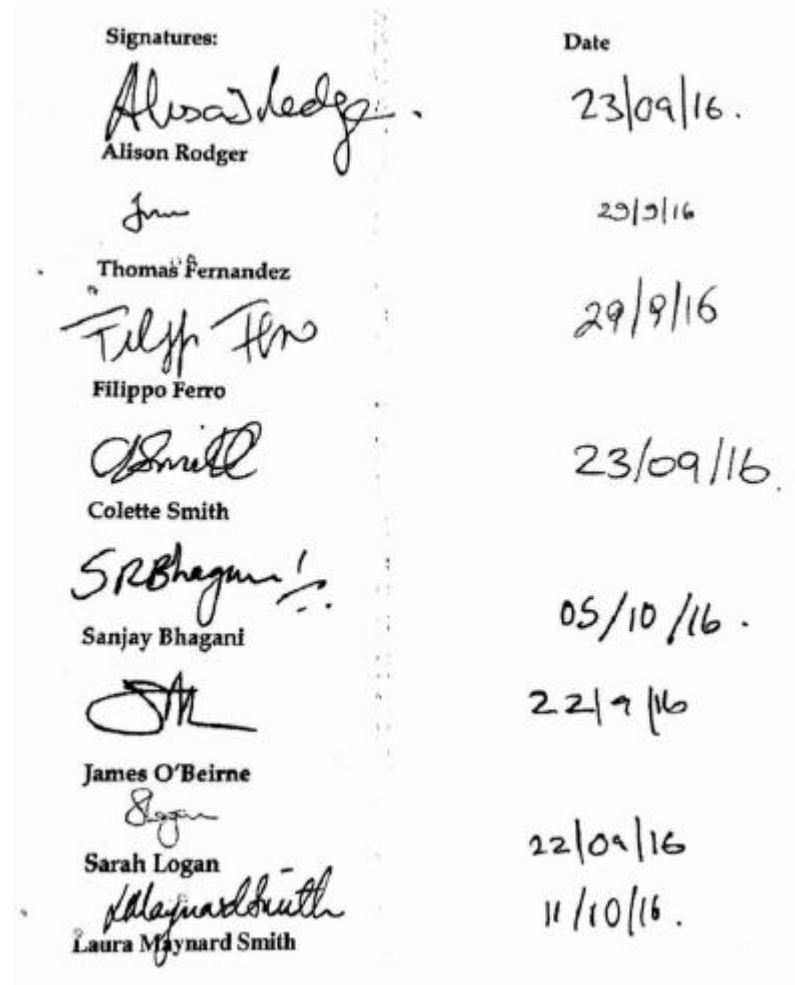 Signatures: Date
23/09/16.
Alison Rodger
29/9/16
Thomas Fernandez
Filippo Ferro 29/9/16
Filippo Ferro
CSmith 23/09/16
Colette Smith
SRBhagani
Sanjay Bhagani 05/10/16.
22/9/16
James O'Beirne
SLogan 22/09/16
Sarah Logan
LMaynardSmith 11/10/16.
Laura Maynard Smith